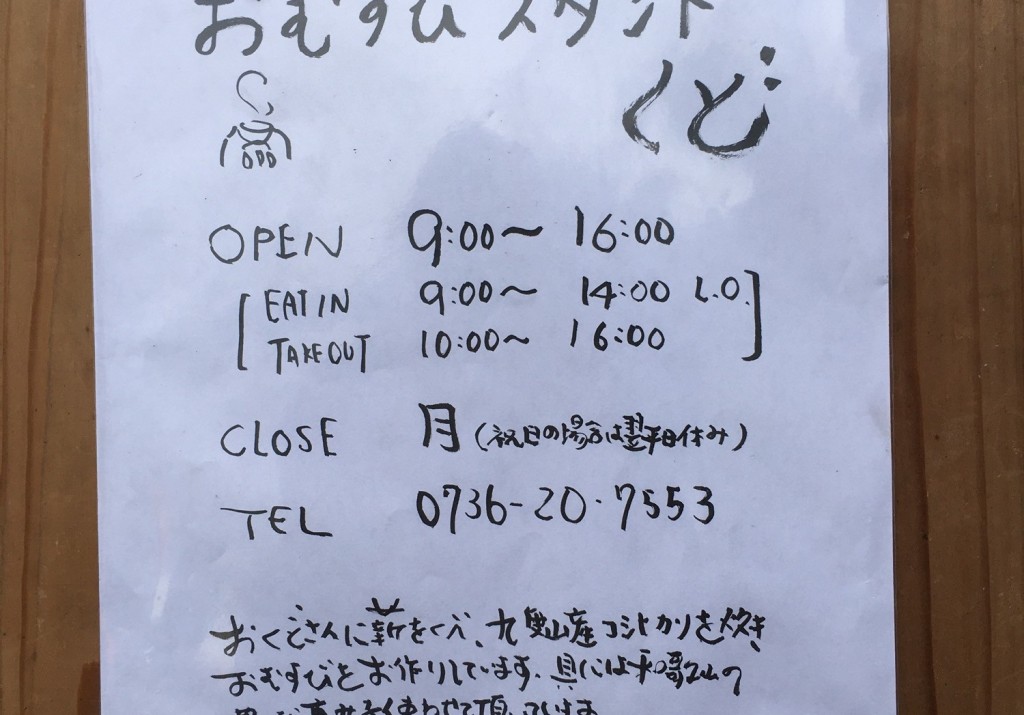 おむすびスタンド
くど
OPEN 9:00〜 16:00
[ EAT IN 9:00〜 14:00 L.O. ]
TAKEOUT 10:00〜 16:00
CLOSE 月 (祝日の場合は翌平日休み)
TEL 0736-20-7553
おくどさんに薪をくべ、九度山産コシヒカリを炊き
おむすびをお作りしています。具には和歌山の
使わせて頂いています